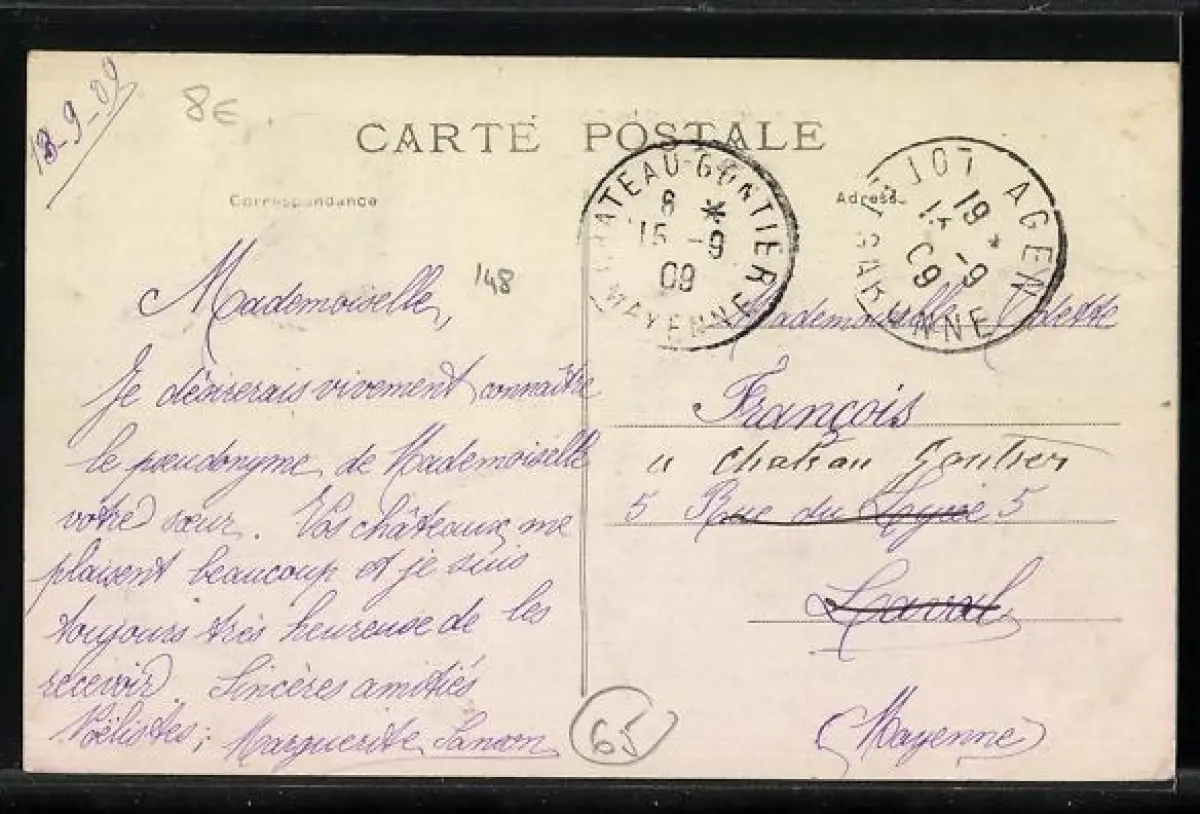 13-9-09
8€
CARTE POSTALE
Correspondance
Adresse
CHATEAU-GONTIER
8 *
15 -9
09
MAYENNE
AGEN
LOT
19 *
-9
09
GARONNE
148
Mademoiselle,
Je désirerais vivement connaître
le pseudonyme de Mademoiselle
votre sœur. Vos châteaux me
plaisent beaucoup et je suis
toujours très heureuse de les
recevoir. Sincères amitiés
Noëlistes; Marguerite Sanson
65
Mademoiselle Odette
François
a Chateau Gontier
5 Rue du 5
Laval
(Mayenne)